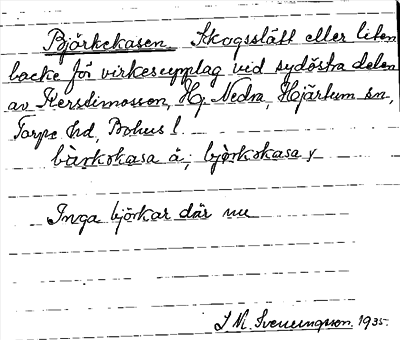 Björkekasen Skogsslätt eller liten
backe för virkesupplag vid sydöstra delen
av Kersdimossen, Hj. Nedra, Hjärtum sn,
Torpe hd, Bohus l.
bàrkokasa å; bjòrkokasa y
Inga björkar där nu
J M. Svenungsson 1935.